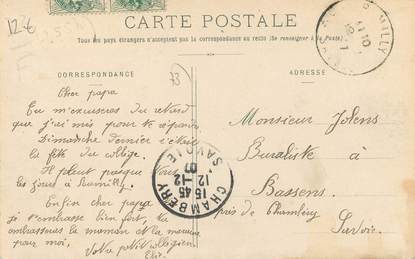 12 €
CARTE POSTALE
Tous les pays étrangers n'acceptent pas la correspondance au recto (Se renseigner à la poste)
CORRESPONDANCE
ADRESSE
73
Cher papa
Tu m'excuseras du retard
que j'ai mis pour te répondre
Dimanche dernier c'était
la fête du collège.
Il pleut presque tous
les jours à Rumilly.
Enfin cher papa
je t'embrasse bien fort, tu
embrasseras la maman et la marraine
pour moi,
Votre petit collégien
Monsieur Jolens
Buraliste à
Bassens
près de Chambéry
Savoie.
CHAMBERY
15 45
12-12
07
SAVOIE
MILLY